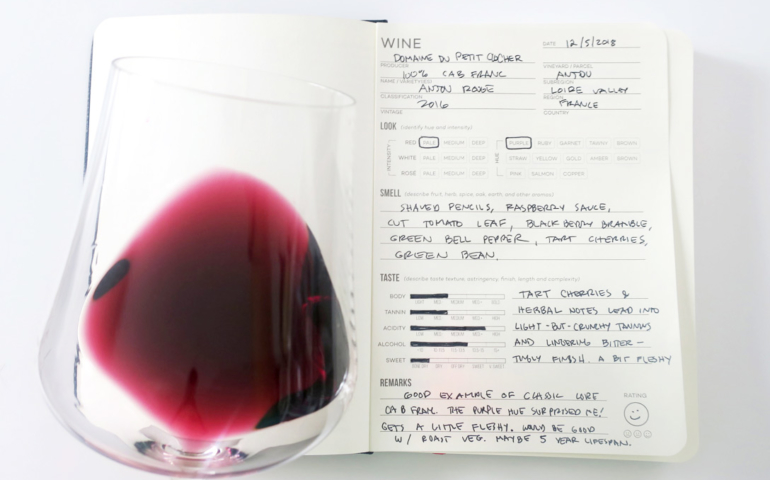 WINE
DATE 12/5/2018
DOMAINE DU PETIT COCHER
PRODUCER
VINEYARD / PARCEL
100% CAB FRANC
ANJOU
NAME / VARIETY(IES)
SUBREGION
ANJOU ROUGE
LOIRE VALLEY
CLASSIFICATION
REGION
2016
FRANCE
VINTAGE
COUNTRY
LOOK (identify hue and intensity)
INTENSITY
RED PALE MEDIUM DEEP
HUE
PURPLE RUBY GARNET TAWNY BROWN
WHITE PALE MEDIUM DEEP
STRAW YELLOW GOLD AMBER BROWN
ROSÉ PALE MEDIUM DEEP
PINK SALMON COPPER
SMELL (describe fruit, herb, spice, oak, earth, and other aromas)
SHAVED PENCILS, RASPBERRY SAUCE,
CUT TOMATO LEAF, BLACKBERRY BRAMBLE,
GREEN BELL PEPPER, TART CHERRIES,
GREEN BEAN.
TASTE (describe taste texture, astringency, finish, length and complexity)
BODY
TART CHERRIES &
TANNIN
HERBAL NOTES LEAD INTO
ACIDITY
LIGHT-BUT-CRUNCHY TANNINS
ALCOHOL
AND LINGERING BITTER-
SWEET
TINGLY FINISH. A BIT FLESHY
REMARKS
GOOD EXAMPLE OF CLASSIC LOIRE
CAB FRANC. THE PURPLE HUE SURPRISED ME!
RATING
GETS A LITTLE FLESHY. WOULD BE GOOD
W/ ROAST VEG. MAYBE 5 YEAR LIFESPAN.